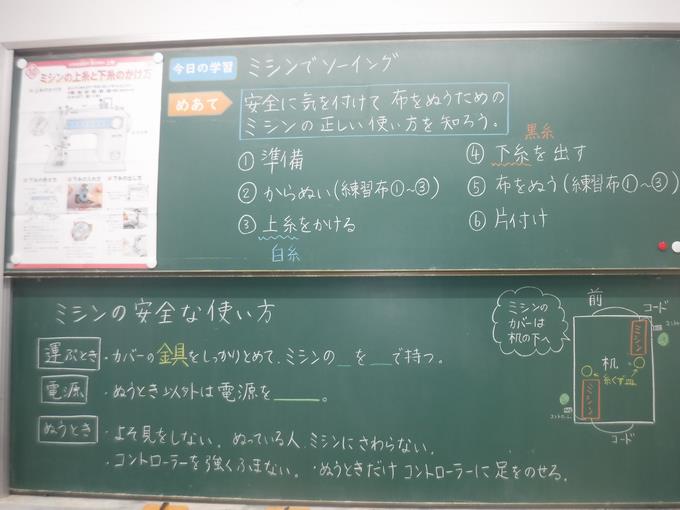 ミシンの上糸と下糸のかけ方
今日の学習
ミシンでソーイング
めあて
安全に気を付けて布をぬうための
ミシンの正しい使い方を知ろう。
①準備
②からぬい(練習布①~③)
③上糸をかける
白糸
黒糸
④下糸を出す
⑤布をぬう(練習布①~③)
⑥片付け
ミシンの安全な使い方
運ぶとき
・カバーの金具をしっかりとめて、ミシンの_を__で持つ。
電源
・ぬうとき以外は電源を____。
ぬうとき
・よそ見をしない。ぬっている人、ミシンにさわらない。
・コントローラーを強くふまない。・ぬうときだけコントローラーに足をのせる。
ミシンの
カバーは
机の下へ
前
コード
ミシン
机
糸くず皿
ミシン
コード